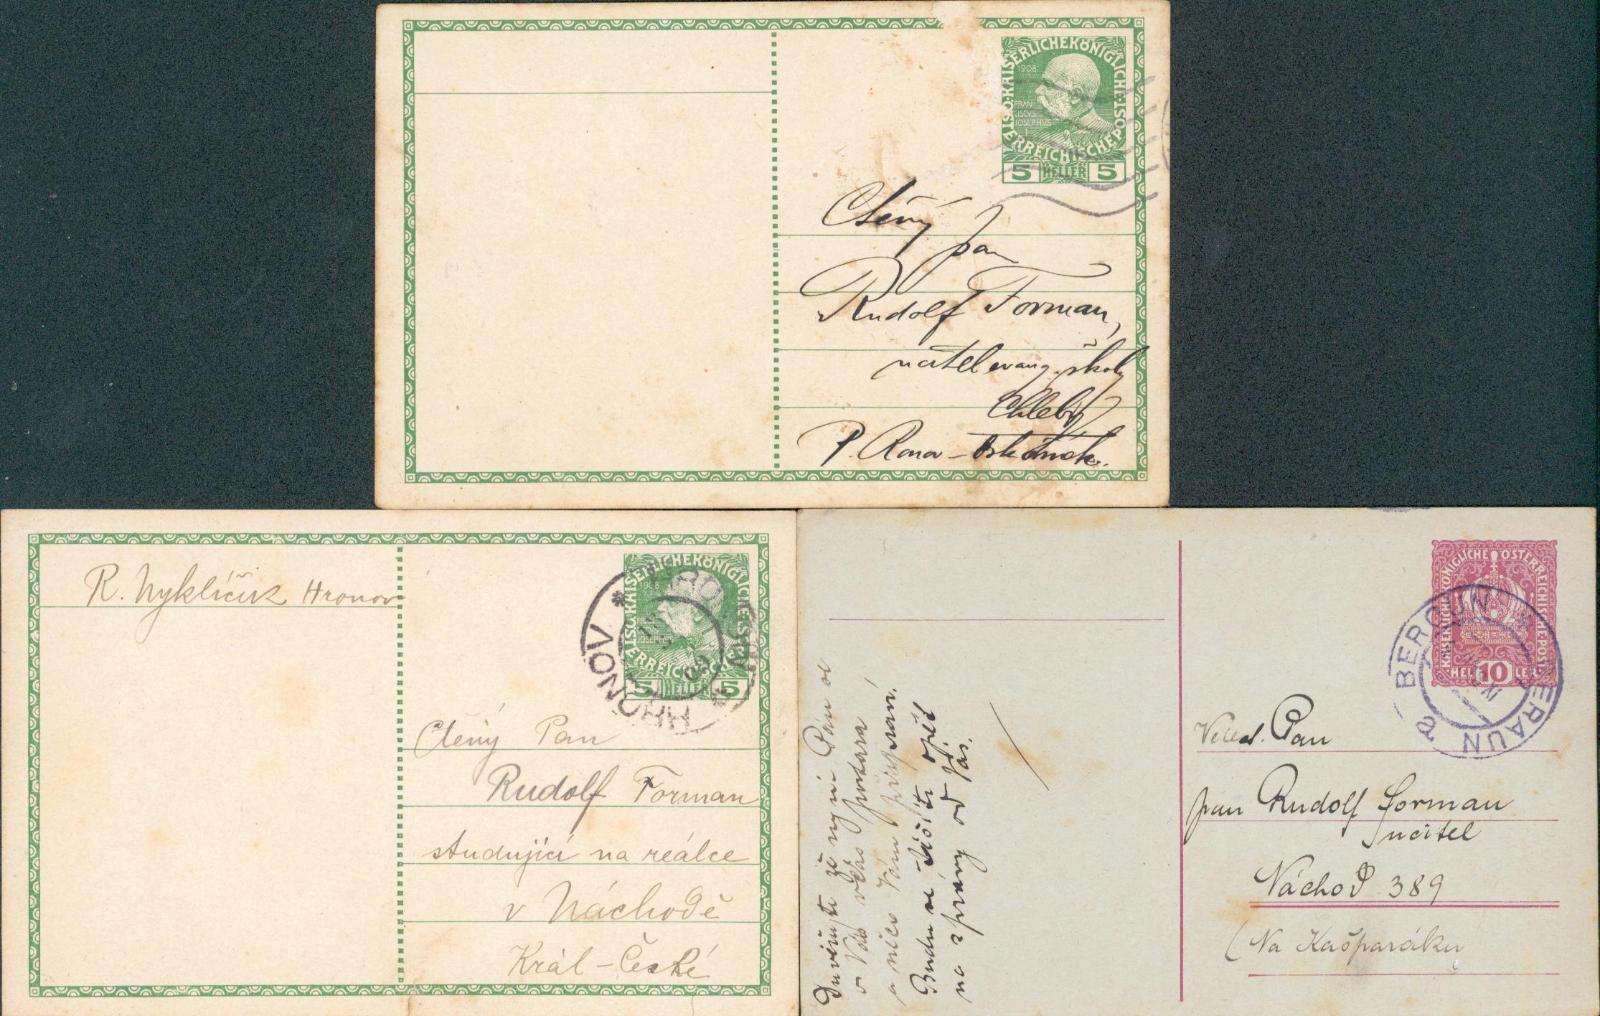 KAISERLICHE KÖNIGLICHE ÖSTERREICHISCHE POST
1908
FRAN
CISCVS
IOSEPHVS
5 HELLER 5
Ctěný
pan
Rudolf Forman,
učitel evang. školy
Chleby
P. Ronov
R. Nyklíček Hronov
KAISERLICHE KÖNIGLICHE ÖSTERREICHISCHE POST
1908
5 HELLER 5
HRONOV * HRONOV *
09
Ctěný Pan
Rudolf Forman
studující na reálce
v Náchodě
Král-České
KAISERLICHE KÖNIGLICHE ÖSTERREICHISCHE POST
HEL 10 LER
BEROUN * BERAUN 2
Veled. Pan
pan Rudolf Forman
učitel
Náchod 389
(Na Kašparáku
že nyní Pán
o Vás
a něco Vám
Budu se těšiti opět
na zprávy od Vás.